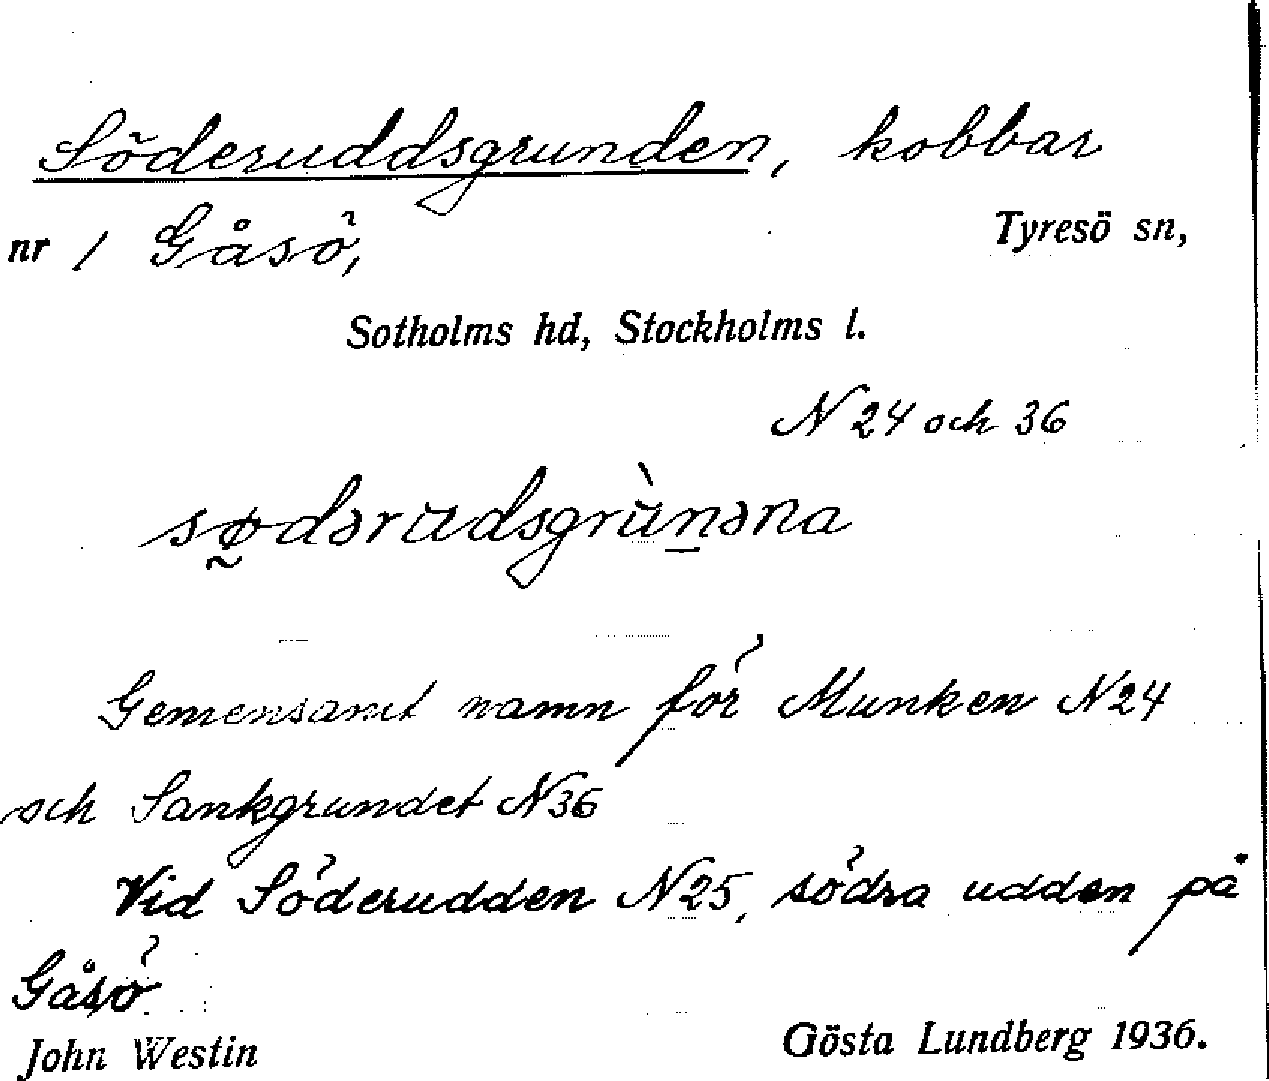 Söderuddsgrunden, kobbar
nr 1 Gåsö, Tyresö sn,
Sotholms hd, Stockholms l.
N 24 och 36
sø̰dərudsgrùn̠əna
Gemensamt namn för Munken N24
och Sankgrundet N36
Vid Söderudden N25, södra udden på
Gåsö.
John Westin Gösta Lundberg 1936.